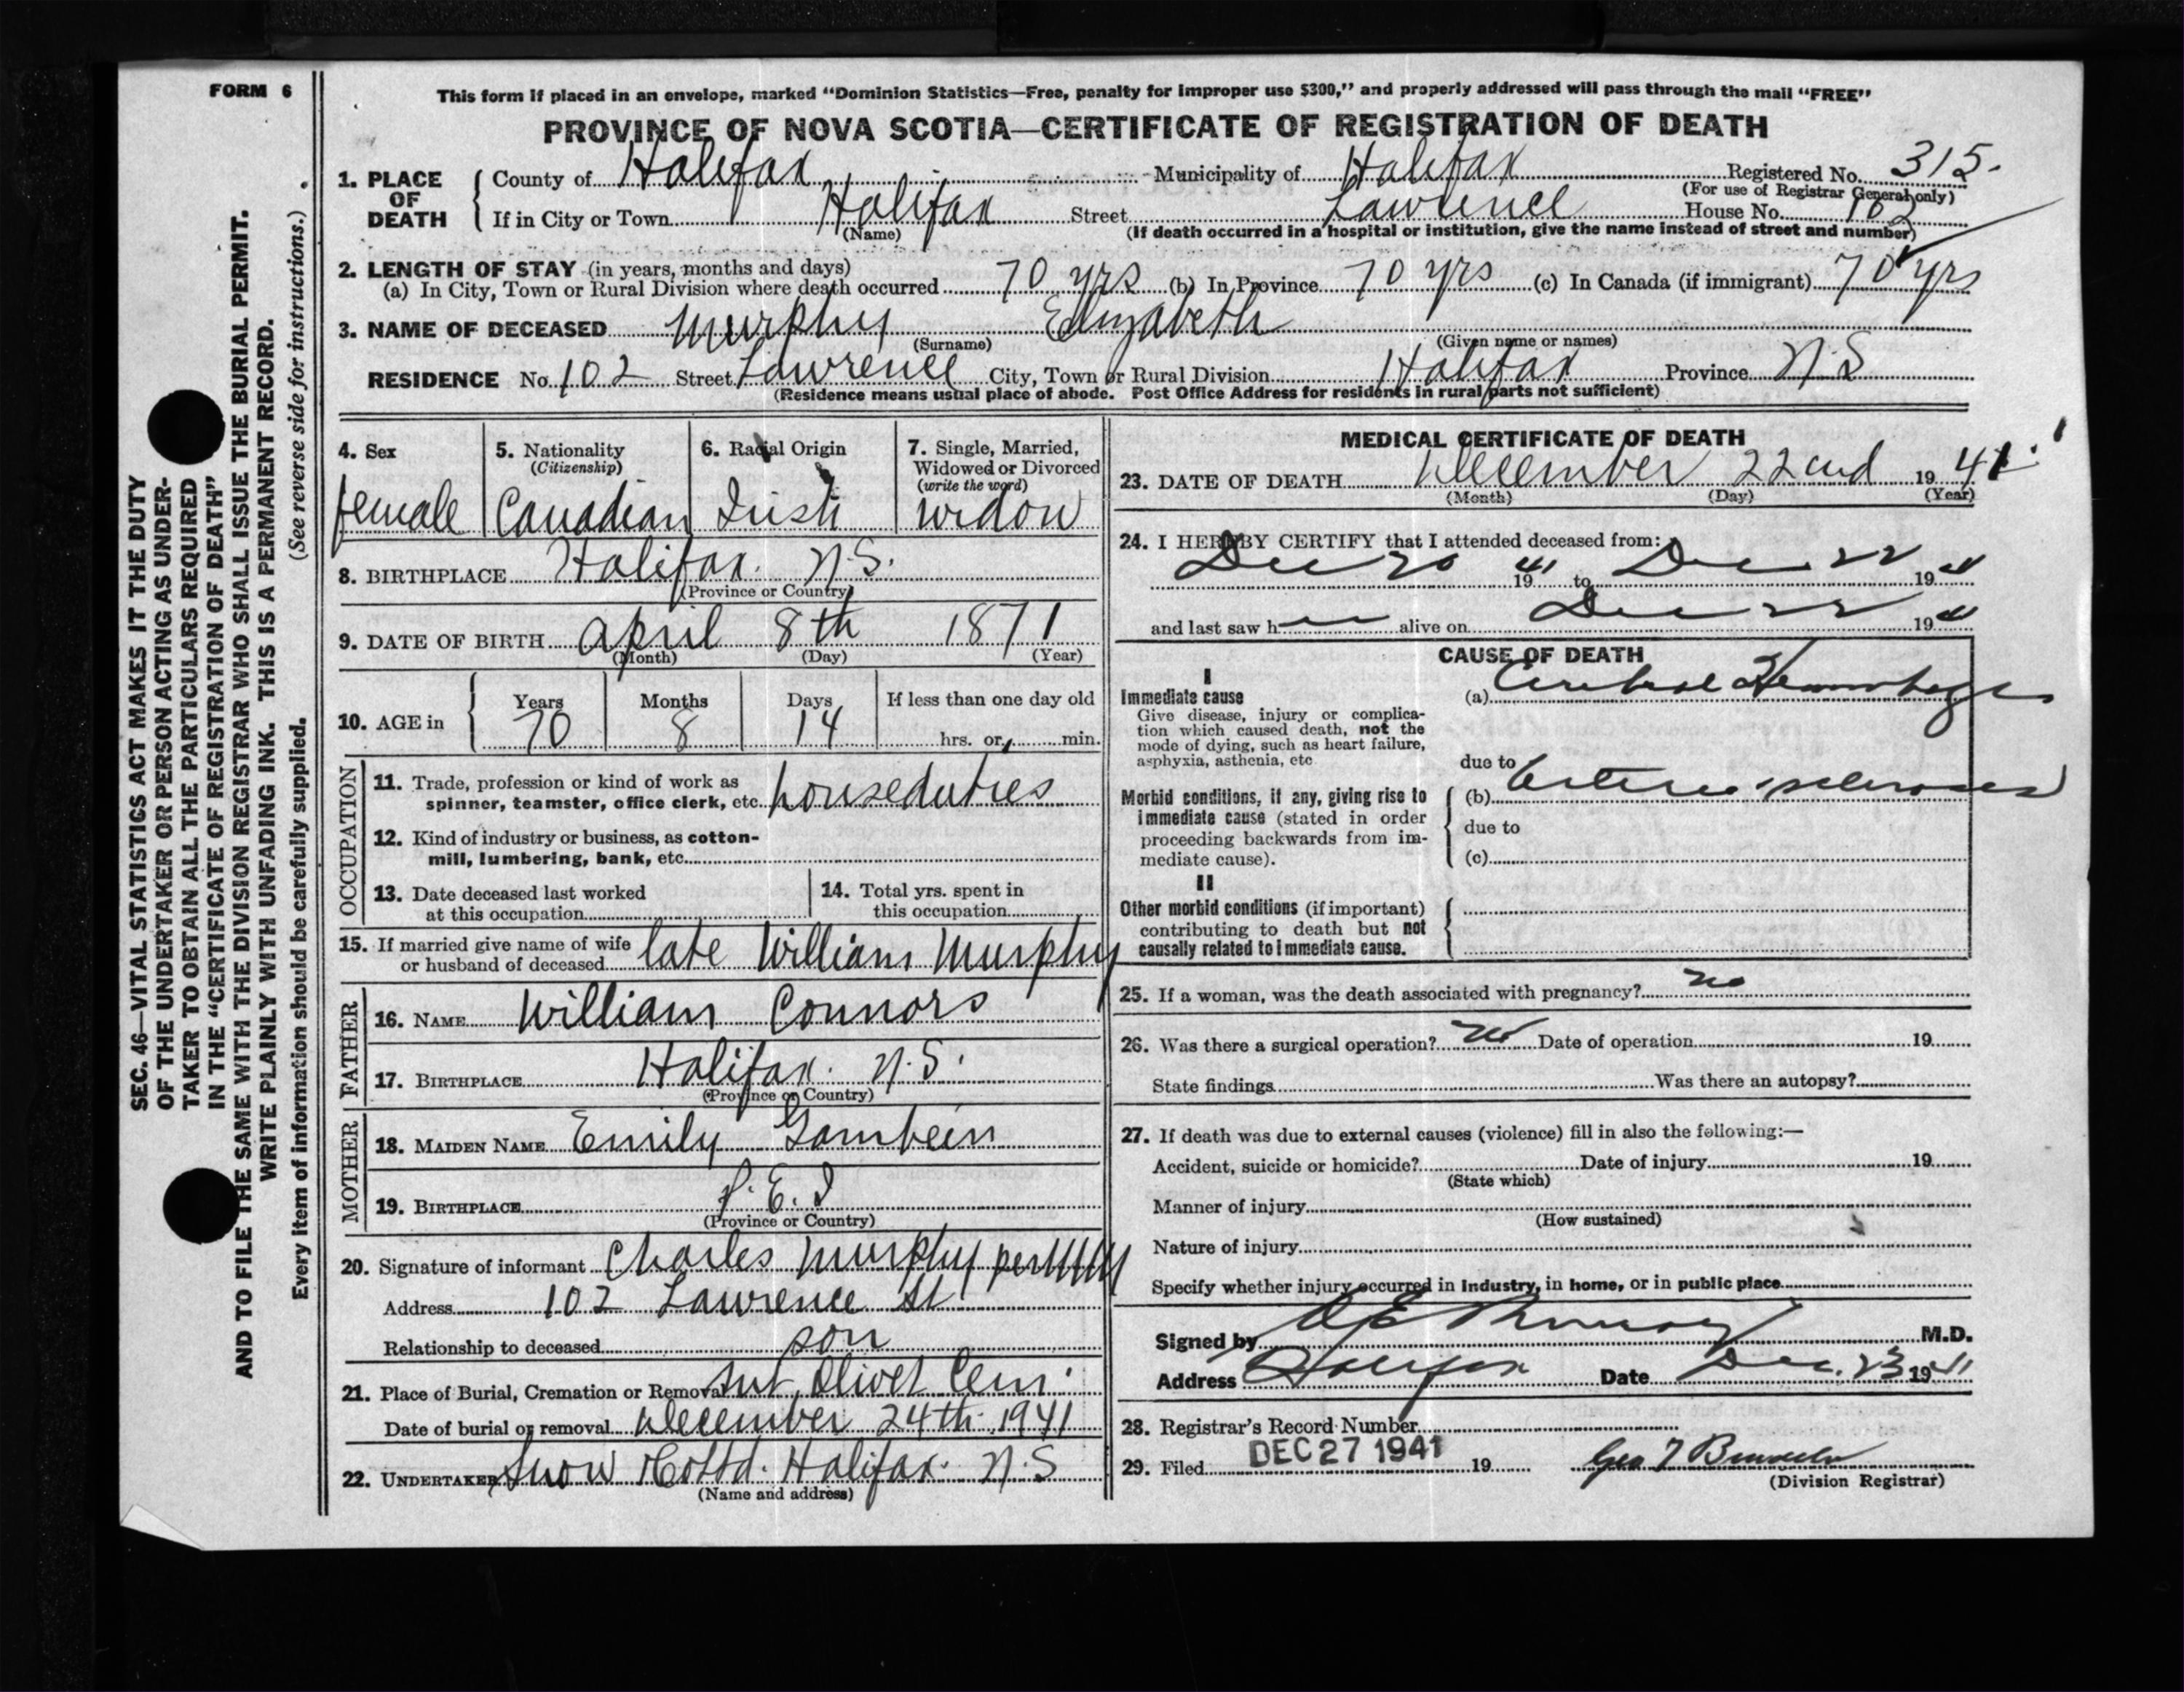 FORM 6
This form if placed in an envelope, marked “Dominion Statistics—Free, penalty for improper use $300,” and properly addressed will pass through the mail “FREE”
PROVINCE OF NOVA SCOTIA—CERTIFICATE OF REGISTRATION OF DEATH
1. PLACE OF DEATH
County of Halifax Municipality of Halifax Registered No. 315.
(For use of Registrar General only)
If in City or Town Halifax Street Lawrence House No. 102
(Name) (If death occurred in a hospital or institution, give the name instead of street and number)
2. LENGTH OF STAY (in years, months and days)
(a) In City, Town or Rural Division where death occurred 70 yrs (b) In Province 70 yrs (c) In Canada (if immigrant) 70 yrs
3. NAME OF DECEASED Murphy Elizabeth
(Surname) (Given name or names)
RESIDENCE No. 102 Street Lawrence City, Town or Rural Division Halifax Province N.S
(Residence means usual place of abode. Post Office Address for residents in rural parts not sufficient)
4. Sex female
5. Nationality (Citizenship) Canadian
6. Racial Origin Irish
7. Single, Married, Widowed or Divorced (write the word) widow
8. BIRTHPLACE Halifax. N.S.
(Province or Country)
9. DATE OF BIRTH April 8th 1871
(Month) (Day) (Year)
10. AGE in Years 70 Months 8 Days 14 If less than one day old
hrs. or min.
OCCUPATION
11. Trade, profession or kind of work as
spinner, teamster, office clerk, etc. houseduties
12. Kind of industry or business, as cotton-
mill, lumbering, bank, etc.
13. Date deceased last worked
at this occupation
14. Total yrs. spent in
this occupation
15. If married give name of wife
or husband of deceased late William Murphy
FATHER
16. NAME William Connors
17. BIRTHPLACE Halifax. N.S.
(Province or Country)
MOTHER
18. MAIDEN NAME Emily
19. BIRTHPLACE P.E.I
(Province or Country)
20. Signature of informant Charles Murphy per
Address 102 Lawrence St
Relationship to deceased son
21. Place of Burial, Cremation or Removal Mt Olivet Cem.
Date of burial or removal December 24th. 1941
22. UNDERTAKER Snow Halifax. N.S
(Name and address)
MEDICAL CERTIFICATE OF DEATH
23. DATE OF DEATH December 22nd 1941
(Month) (Day) (Year)
24. I HEREBY CERTIFY that I attended deceased from:
Dec 20 1941 to Dec 22 1941
and last saw h er alive on Dec 22 1941
CAUSE OF DEATH
I
Immediate cause
Give disease, injury or complica-
tion which caused death, not the
mode of dying, such as heart failure,
asphyxia, asthenia, etc
(a) Cerebral Hemorrhage
due to
Morbid conditions, if any, giving rise to
immediate cause (stated in order
proceeding backwards from im-
mediate cause).
(b) Arterio sclerosis
due to
(c)
II
Other morbid conditions (if important)
contributing to death but not
causally related to immediate cause.
25. If a woman, was the death associated with pregnancy? no
26. Was there a surgical operation? no Date of operation 19
State findings Was there an autopsy?
27. If death was due to external causes (violence) fill in also the following:—
Accident, suicide or homicide? Date of injury 19
(State which)
Manner of injury
(How sustained)
Nature of injury
Specify whether injury occurred in industry, in home, or in public place
Signed by M.D.
Address Halifax Date Dec. 23 1941
28. Registrar's Record Number
29. Filed DEC 27 1941 19
(Division Registrar)
SEC. 46—VITAL STATISTICS ACT MAKES IT THE DUTY
OF THE UNDERTAKER OR PERSON ACTING AS UNDER-
TAKER TO OBTAIN ALL THE PARTICULARS REQUIRED
IN THE “CERTIFICATE OF REGISTRATION OF DEATH”
AND TO FILE THE SAME WITH THE DIVISION REGISTRAR WHO SHALL ISSUE THE BURIAL PERMIT.
WRITE PLAINLY WITH UNFADING INK. THIS IS A PERMANENT RECORD.
(See reverse side for instructions.)
Every item of information should be carefully supplied.